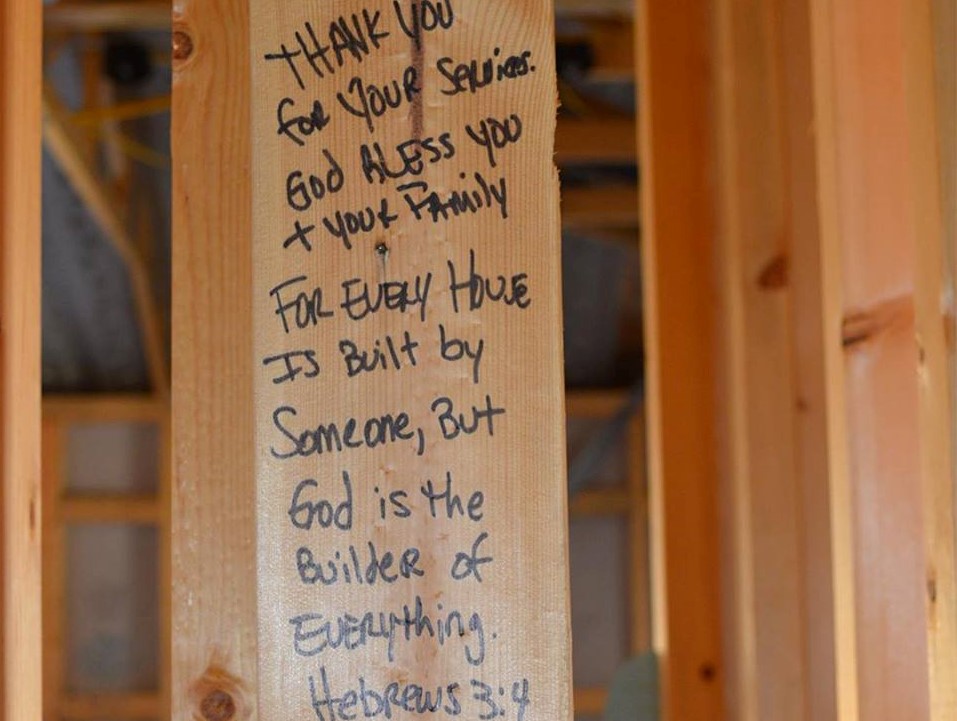 THANK YOU
for YOUR Services.
God BLESS YOU
+ YOUR FAMily
FOR EVERY HOUSE
Is Built by
Someone, But
God is the
Builder of
EVERYthing.
Hebrews 3:4